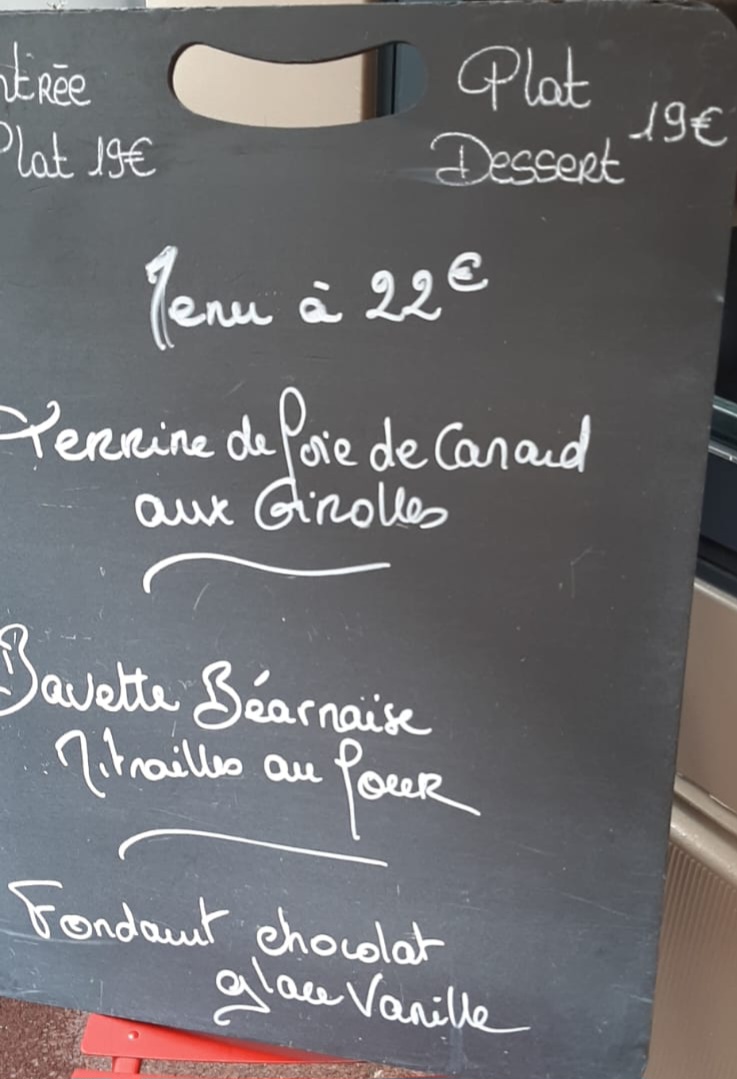 ntrée
Plat 19€
Plat
Dessert 19€
Menu à 22€
Terrine de foie de Canard
aux Girolles
Bavette Béarnaise
Mitrailles au four
Fondant chocolat
glace Vanille